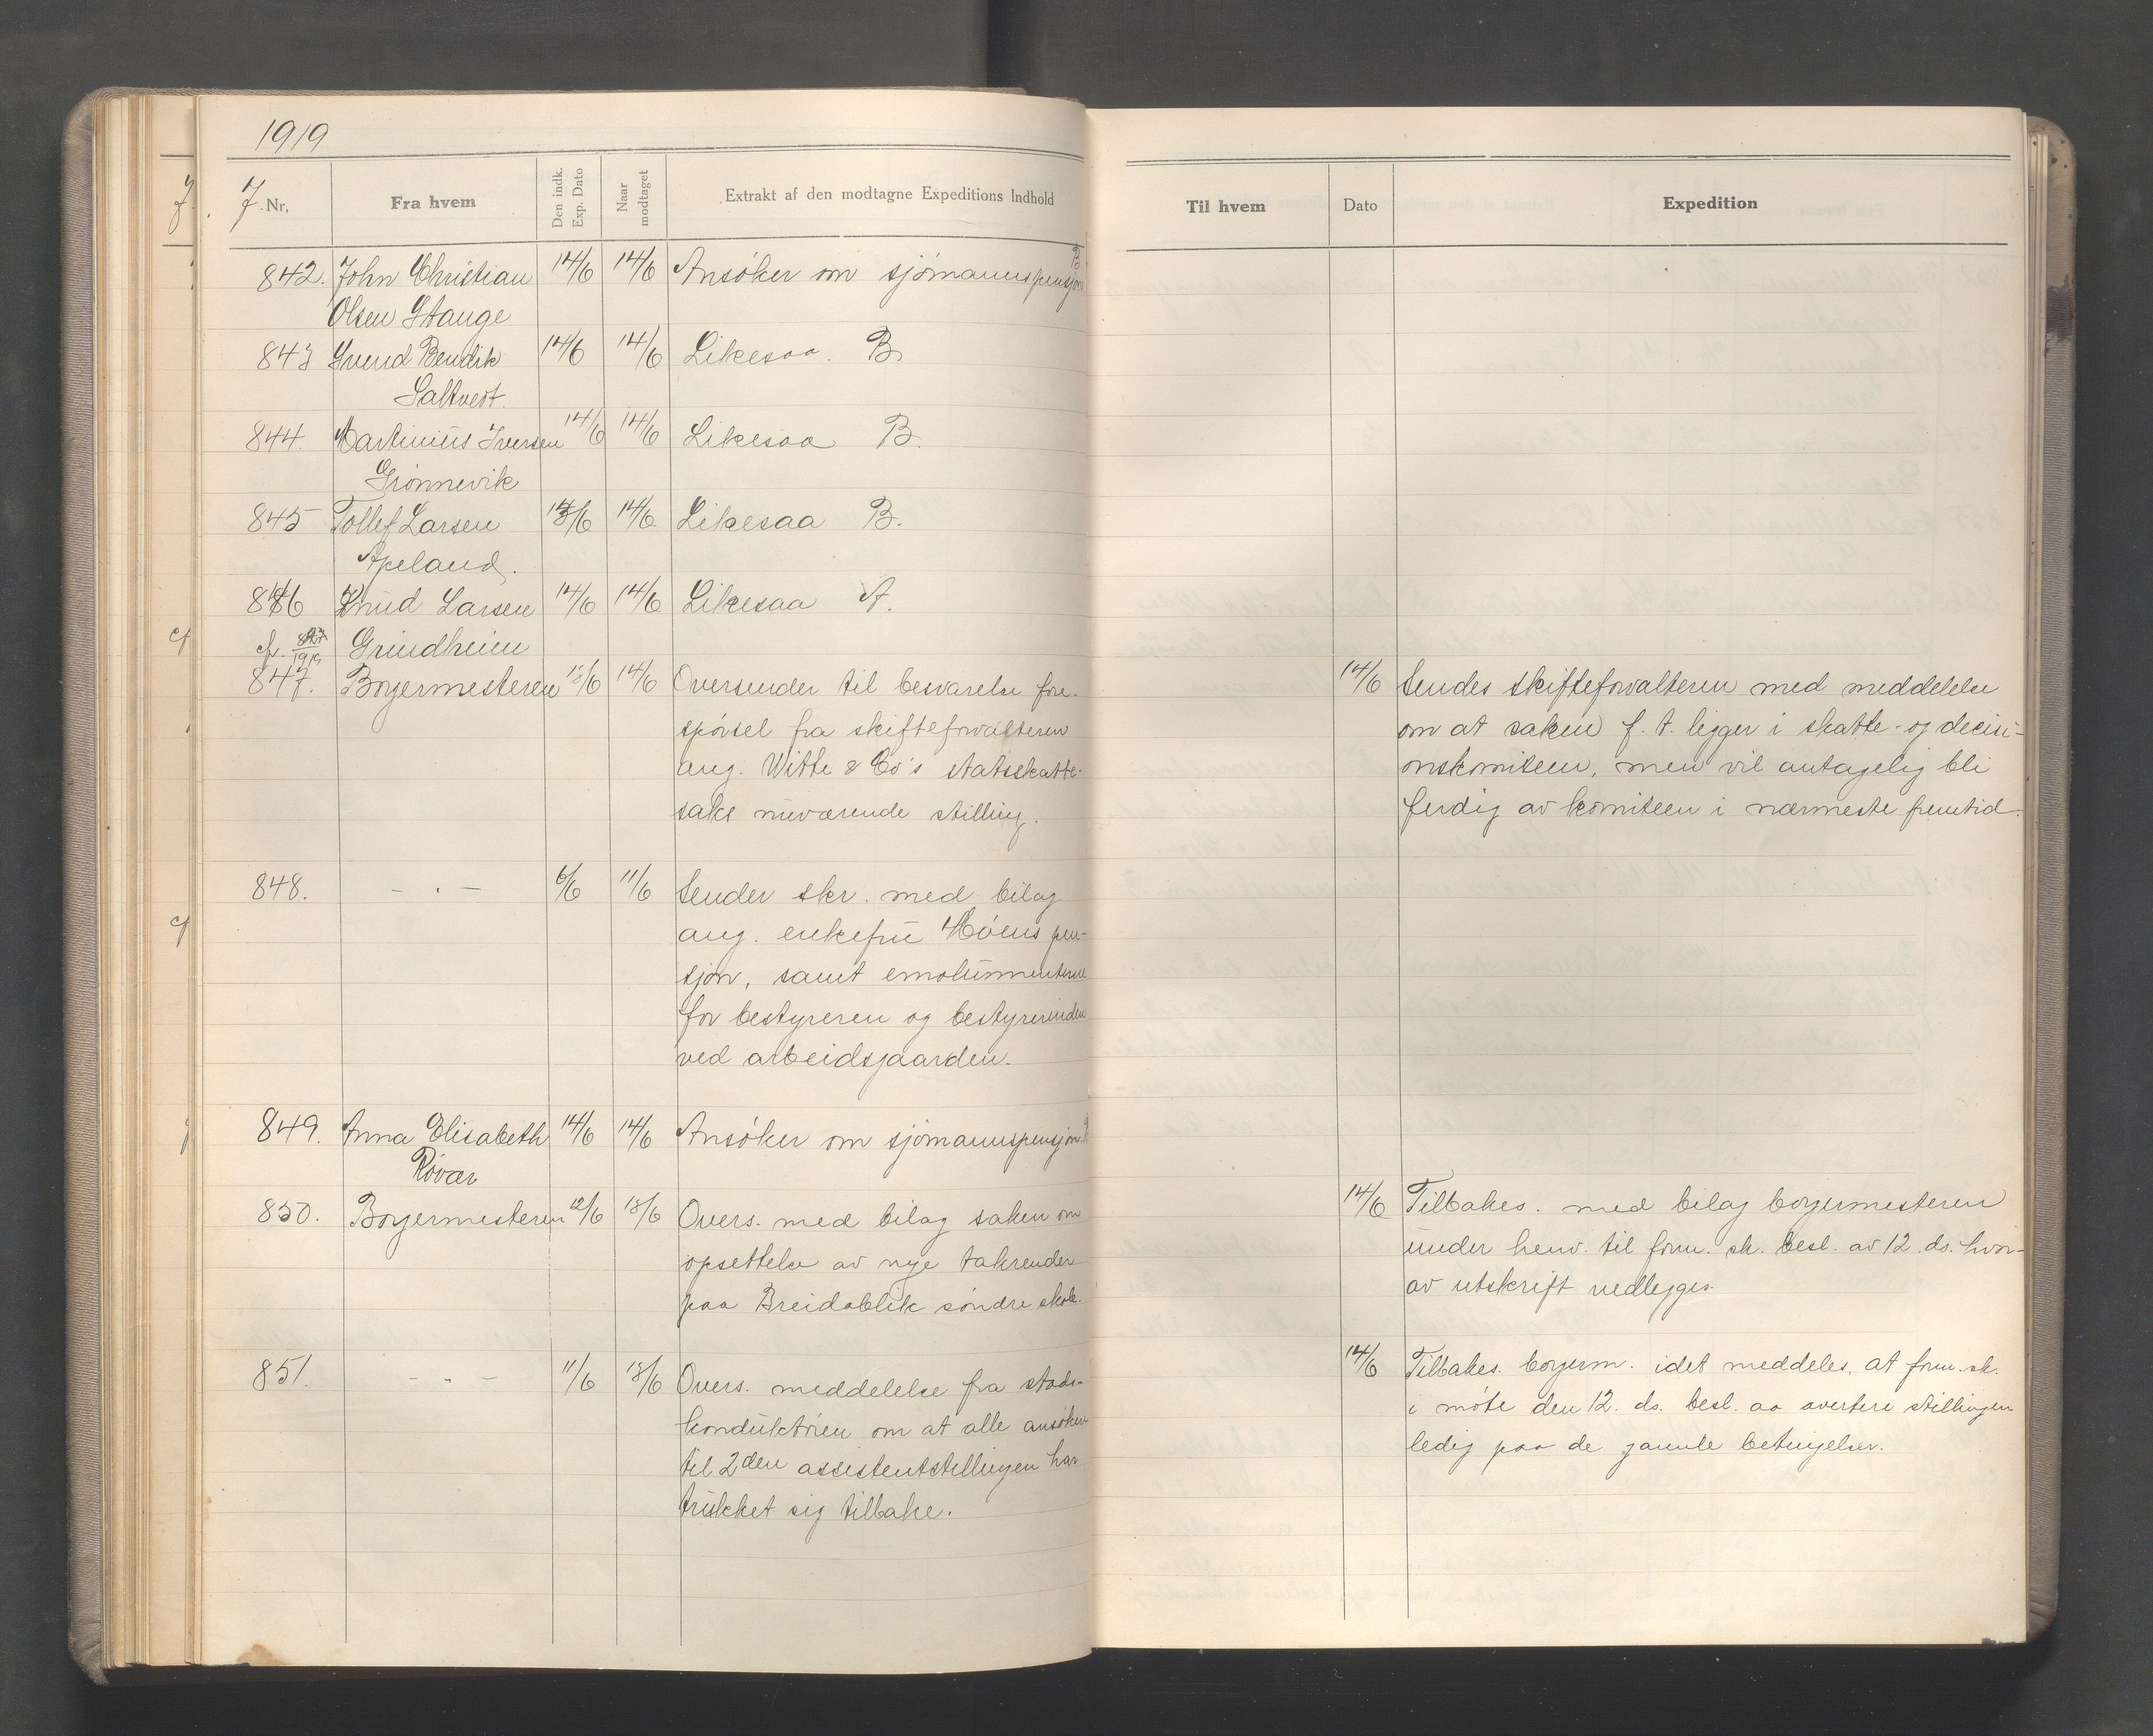 1919
J. Nr. Fra hvem Den indk. Exp. Dato Naar modtaget Extrakt af den modtagne Expeditions Indhold
842. John Christian 14/6 14/6 Ansöker om sjömannspensjon B.
Olsen Stange
843 Svend Bendik 14/6 14/6 Likesaa. B.
Saltvedt.
844. Martinius Iversen 14/6 14/6 Likesaa B.
Grönnevik
845 Tollef Larsen 14/6 Likesaa B.
Apeland.
846 Knud Larsen 14/6 14/6 Likesaa A.
cfr. 1919 Grindheim
847. Borgermesteren 13/6 14/6 Oversender til besvarelse fore-
spörsel fra skifteforvalteren
ang. Witte & Co's statsskatte-
saks nuværende stilling.
848. — " — 6/6 11/6 Sender skr. med bilag
ang. enkefru Möens pen-
sjon, samt emolumenterne
for bestyreren og bestyrerinden
ved arbeidsgaarden.
849. Anna Elisabeth 14/6 14/6 Ansöker om sjömannspensjon.
Rövær
850. Borgermesteren 12/6 13/6 Overs. med bilag saken om
opsettelse av nye takrender
paa Breidablik söndre skole.
851. — " — 11/6 13/6 Overs. meddelelse fra stads-
konduktören om at alle ansökere
til 2den assistentstillingen har
trukket sig tilbake.
Til hvem Dato Expedition
14/6 Sendes skifteforvalteren med meddelelse
om at saken f. t. ligger i skatte- og decisi-
onskomiteen, men vil antagelig bli
ferdig av komiteen i nærmeste fremtid.
14/6 Tilbakes. med bilag borgermesteren
under henv. til form. sk. besl. av 12. ds. hvor-
av utskrift vedlegges.
14/6 Tilbakes. borgerm. idet meddeles, at form. sk.
i möte den 12. ds. besl. aa avertere stillingen
ledig paa de gamle betingelser.